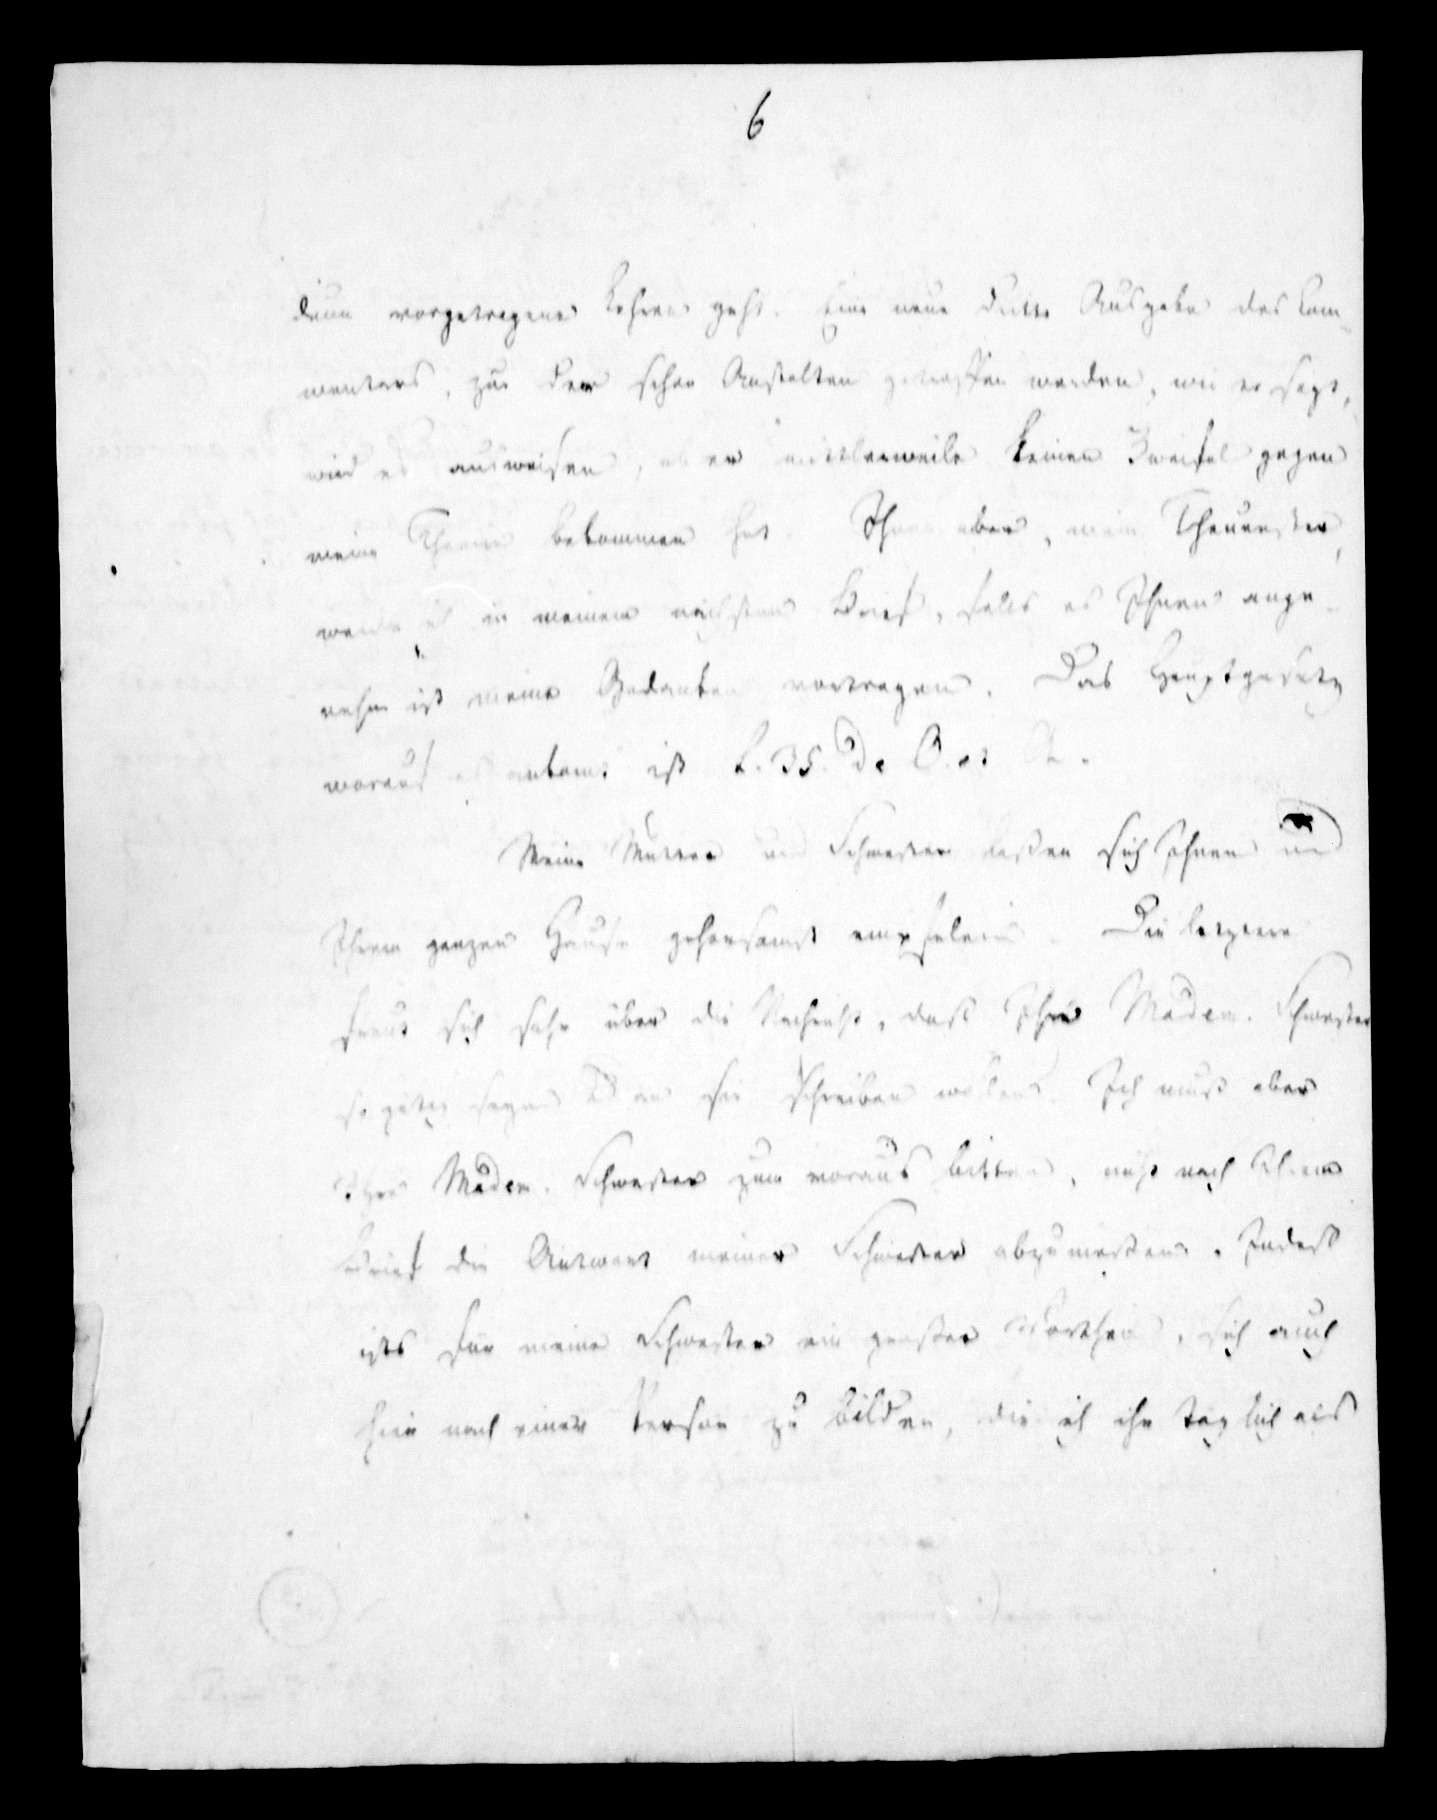 6
darin vorgetragene Lehren geht. Eine neue dritte Ausgabe des Com-
mentars, zu der schon Anstalten getroffen werden, wie er sagt,
wird es ausweisen, ob er mittlerweile keinen Zweifel gegen
meine Theorie bekommen hat. Ihnen aber, mein Theurester,
werde ich in meinem nächsten Brief, falls es Ihnen ange-
nehm ist meine Gedanken vortragen. Das Hauptgesetz
worauf es ankomt ist L. 35. de O. et A.
Meine Mutter und Schwester laßen sich Ihnen und
Ihrem ganzen Hause gehorsamst empfelen. Die letztere
freut sich sehr über die Nachricht, daß Ihre Madem. Schwester
so gütig seyn & an sie schreiben wollen. Ich muß aber
Ihre Madem. Schwester zum voraus bitten, nicht nach Ihrem
Brief die Antwort meiner Schwester abzumeßen. Indeß
ists für meine Schwester ein großer Vortheil, sich auch
hier nach einer Person zu bilden, die ich ihr täglich als